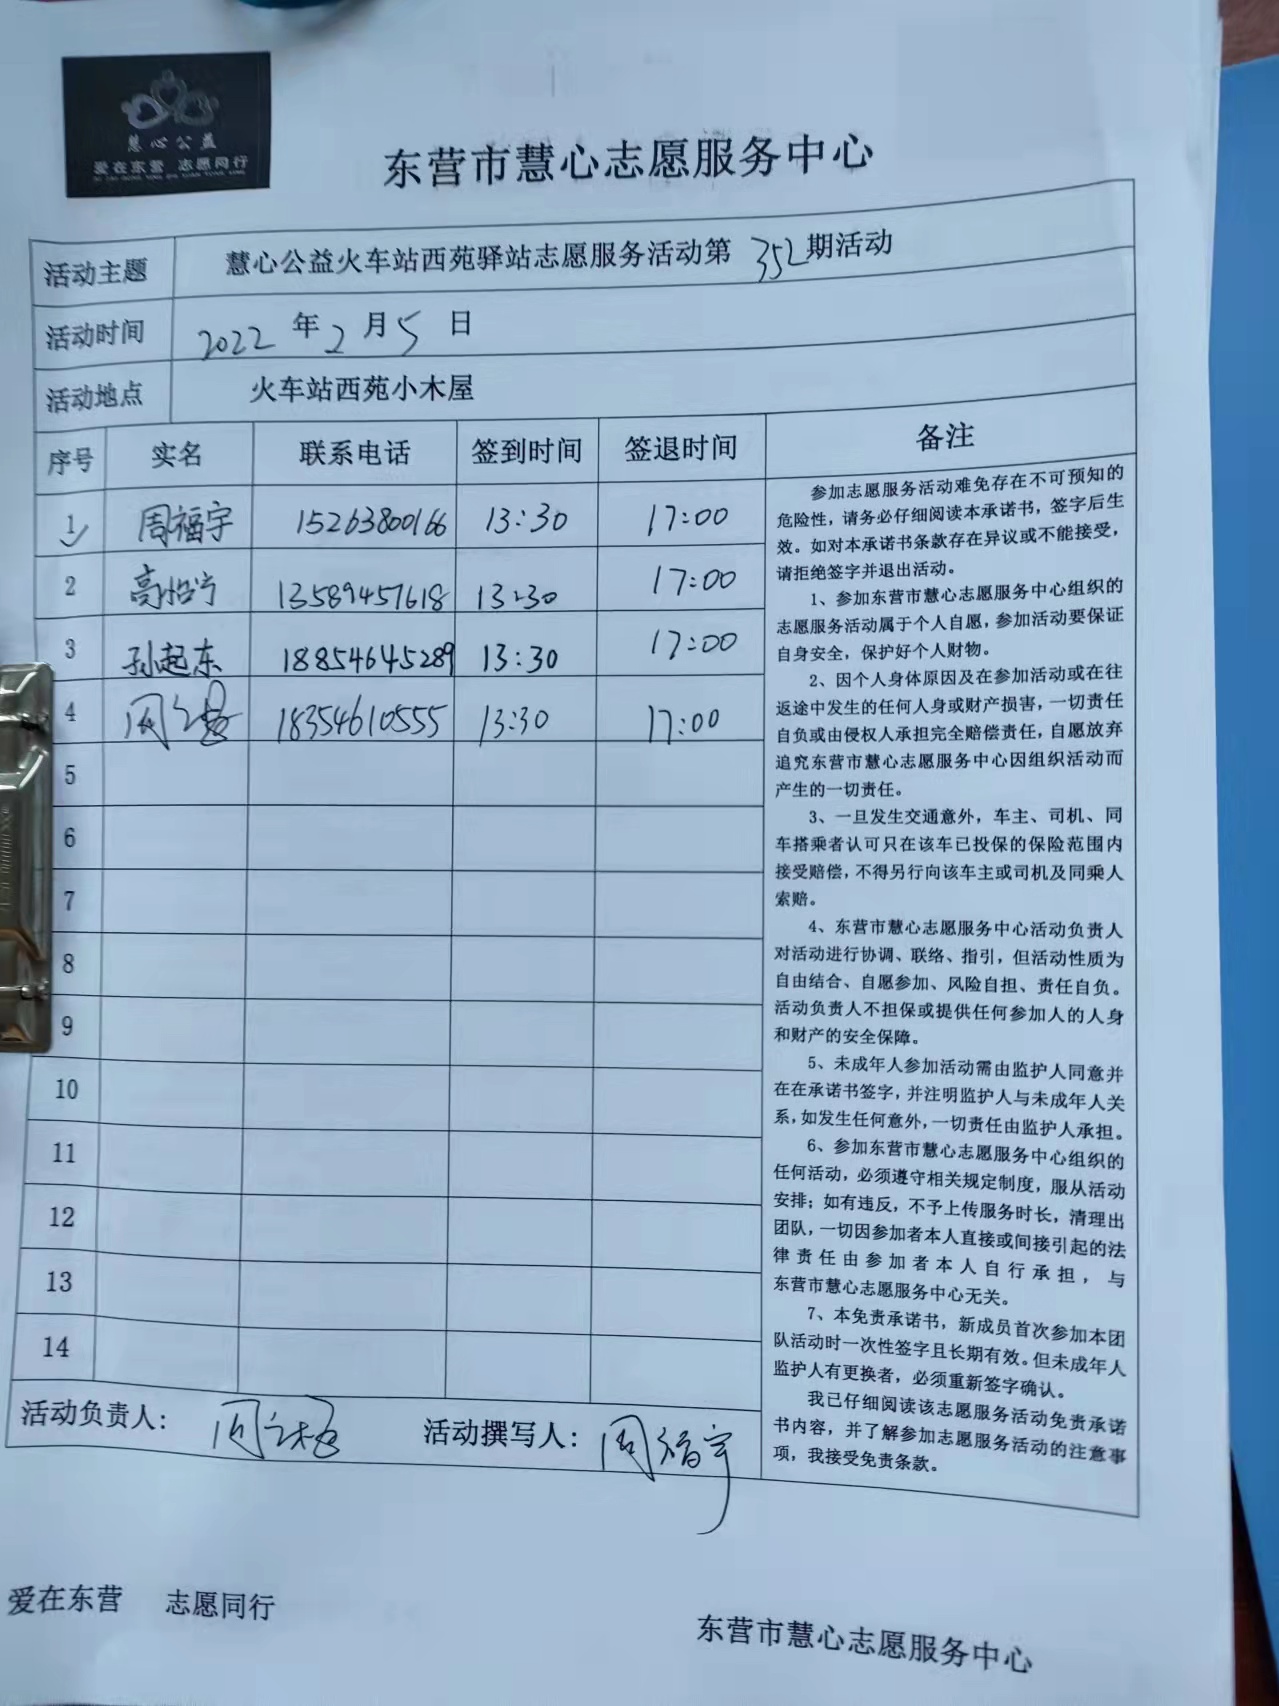 慧心公益
爱在东营 志愿同行
东营市慧心志愿服务中心
活动主题 慧心公益火车站西苑驿站志愿服务活动第352期活动
活动时间 2022年2月5日
活动地点 火车站西苑小木屋
序号 实名 联系电话 签到时间 签退时间 备注
1 周福宇 15263800166 13:30 17:00
2 高怡宁 13589457618 13:30 17:00
3 孙起东 18854645289 13:30 17:00
4 周 18354610555 13:30 17:00
5
6
7
8
9
10
11
12
13
14
参加志愿服务活动难免存在不可预知的
危险性，请务必仔细阅读本承诺书，签字后生
效。如对本承诺书条款存在异议或不能接受，
请拒绝签字并退出活动。
1、参加东营市慧心志愿服务中心组织的
志愿服务活动属于个人自愿，参加活动要保证
自身安全，保护好个人财物。
2、因个人身体原因及在参加活动或在往
返途中发生的任何人身或财产损害，一切责任
自负或由侵权人承担完全赔偿责任，自愿放弃
追究东营市慧心志愿服务中心因组织活动而
产生的一切责任。
3、一旦发生交通意外，车主、司机、同
车搭乘者认可只在该车已投保的保险范围内
接受赔偿，不得另行向该车主或司机及同乘人
索赔。
4、东营市慧心志愿服务中心活动负责人
对活动进行协调、联络、指引，但活动性质为
自由结合、自愿参加、风险自担、责任自负。
活动负责人不担保或提供任何参加人的人身
和财产的安全保障。
5、未成年人参加活动需由监护人同意并
在在承诺书签字，并注明监护人与未成年人关
系，如发生任何意外，一切责任由监护人承担。
6、参加东营市慧心志愿服务中心组织的
任何活动，必须遵守相关规定制度，服从活动
安排；如有违反，不予上传服务时长，清理出
团队，一切因参加者本人直接或间接引起的法
律责任由参加者本人自行承担，与
东营市慧心志愿服务中心无关。
7、本免责承诺书，新成员首次参加本团
队活动时一次性签字且长期有效。但未成年人
监护人有更换者，必须重新签字确认。
我已仔细阅读该志愿服务活动免责承诺
书内容，并了解参加志愿服务活动的注意事
项，我接受免责条款。
活动负责人： 周 活动撰写人：周福宇
爱在东营 志愿同行
东营市慧心志愿服务中心